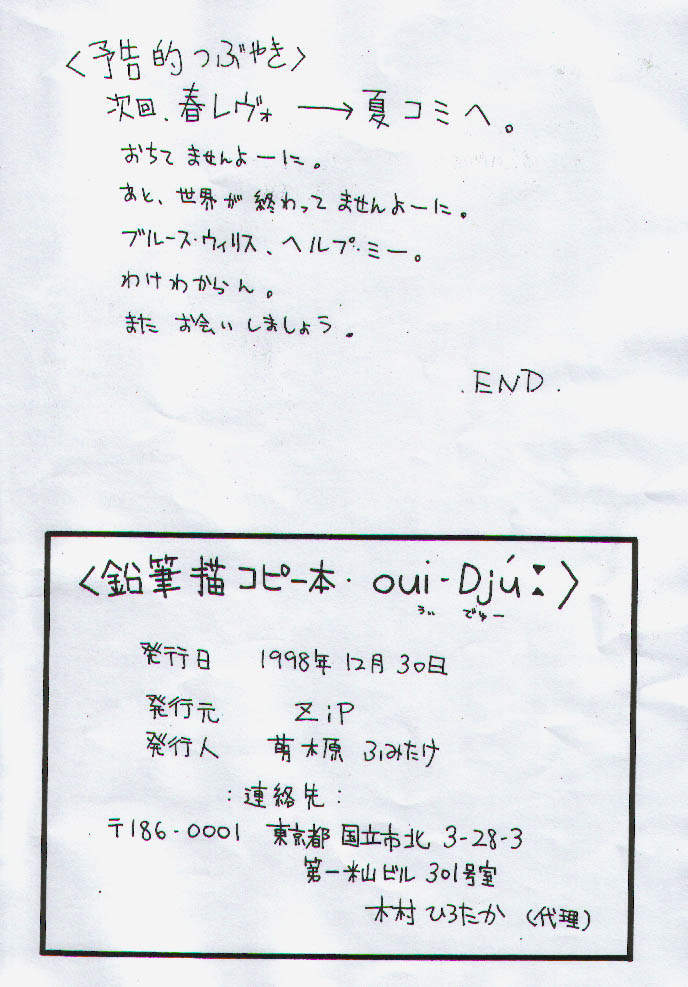 〈予告的つぶやき〉
次回、春レヴォ ⟶ 夏コミへ。
おちてませんよーに。
あと、世界が終わってませんよーに。
ブルース・ウィリス、ヘルプ・ミー。
わけわからん。
またお会いしましょう。
.END.
〈鉛筆描コピー本・oui-Djú:〉
うぃ でゅー
発行日 1998年12月30日
発行元 ZiP
発行人 萌木原 ふみたけ
:連絡先:
〒186-0001 東京都国立市北3-28-3
第一米山ビル 301号室
木村ひろたか(代理)